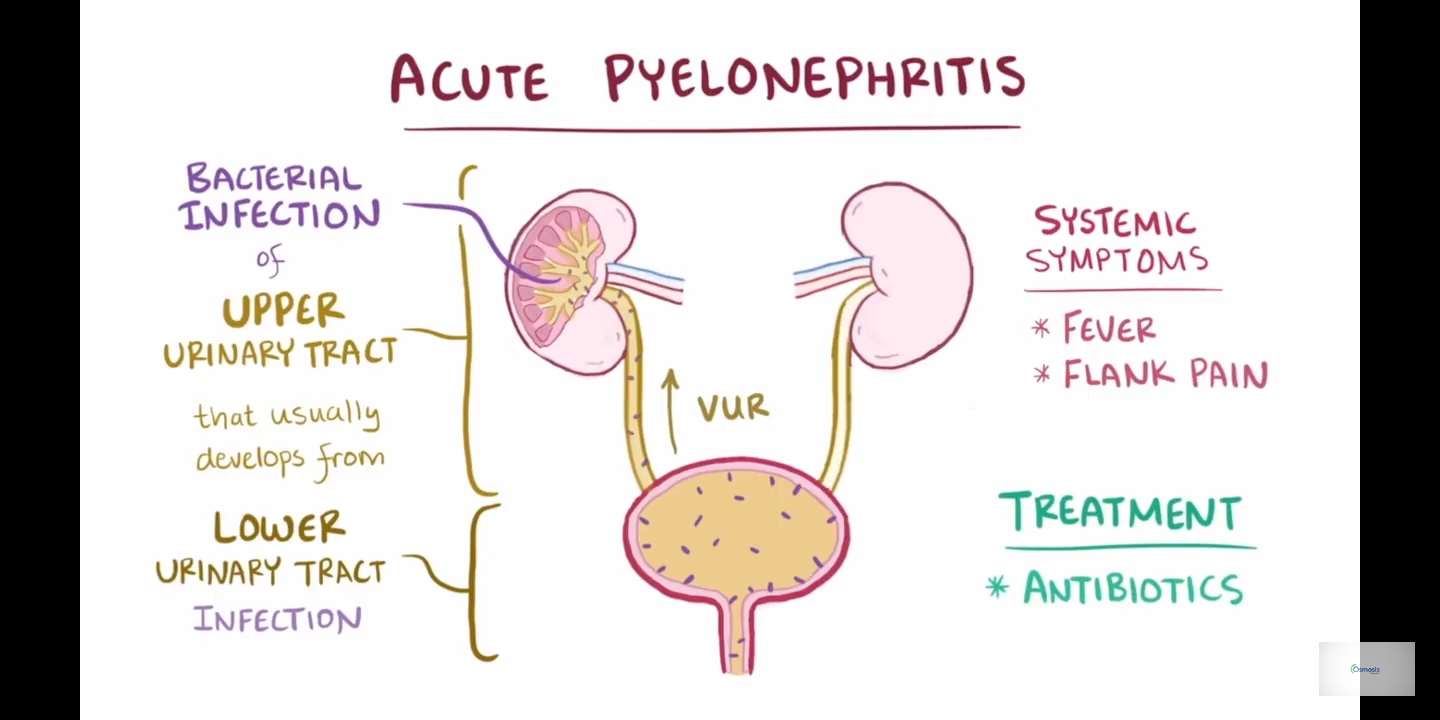 ACUTE PYELONEPHRITIS
BACTERIAL
INFECTION
of
UPPER
URINARY TRACT
that usually
develops from
LOWER
URINARY TRACT
INFECTION
VUR
SYSTEMIC
SYMPTOMS
* FEVER
* FLANK PAIN
TREATMENT
* ANTIBIOTICS
Osmosis